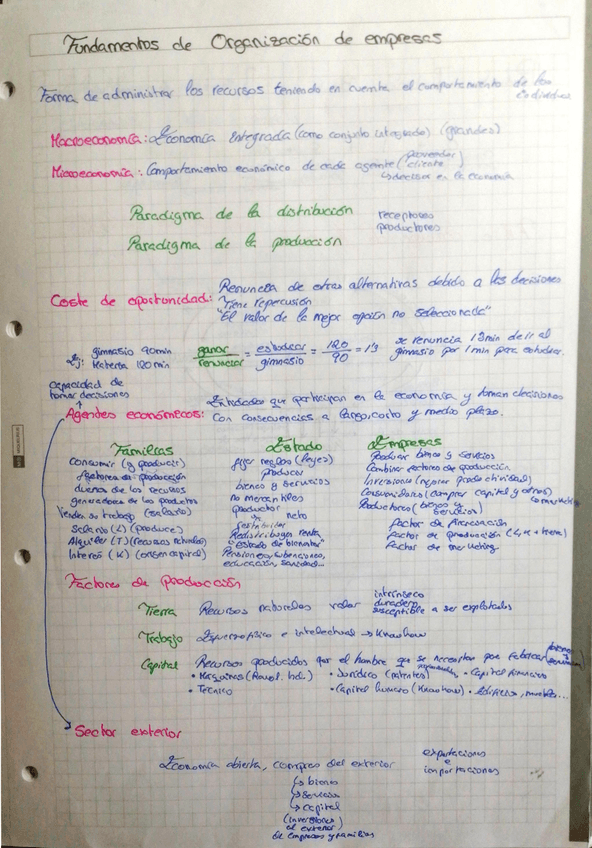 Fundamentos de Organización de empresas
Forma de administrar los recursos teniendo en cuenta el comportamiento de los
individuos
Macroeconomía: Economía integrada (como conjunto integrado) (grandes)
Microeconomía: Comportamiento económico de cada agente (proveedor
cliente
↳ decisor en la economía
Paradigma de la distribución receptores
productores
Paradigma de la producción
Renuncia de otras alternativas debido a las decisiones
Coste de oportunidad: Tiene repercusión
"El valor de la mejor opción no seleccionada"
Ej: gimnasio 90min ganar/renunciar = estudiar/gimnasio = 120/90 = 1'3 se renuncia 1'3min de ir al
Materia 120min gimnasio por 1min para estudiar.
capacidad de
tomar decisiones
Entidades que participan en la economía y toman decisiones
Agentes económicos: Con consecuencias a largo, corto y medio plazo.
Familias Estado Empresas
Consumir (y producir) fijar reglas (leyes) Producir bienes y servicios
factores de producción producir Combinar factores de producción
dueños de los recursos bienes y servicios Inversiones (mejorar productividad)
generadores de los productos no mercantiles Consumidores (comprar capital y otros)
Vender su trabajo (salario) productor neto Productores (bienes y servicios)
Salario (L) (produce) Redistribuye renta factor de
Alquiler (T) (recursos naturales) "estado de bienestar" factor de producción (L, K + tierra)
Interés (K) (origen capital) Pensiones, subvenciones, factor de marketing
educación, sanidad...
Factores de producción
Tierra Recursos naturales valor intrínseco
duradero
susceptible a ser explotados
Trabajo Esfuerzo físico e intelectual → Knowhow
Capital Recursos producidos por el hombre que se necesitan para fabricar (bienes y servicios)
• Máquinas (Revol. Ind.) • Jurídico (patentes) • Capital financiero
• Técnico • Capital humano (Knowhow) • Edificios, muebles...
Sector exterior
Economía abierta, compras del exterior exportaciones
e
importaciones
↳ bienes
↳ servicios
↳ capital
(inversiones)
al exterior
de empresas y familias